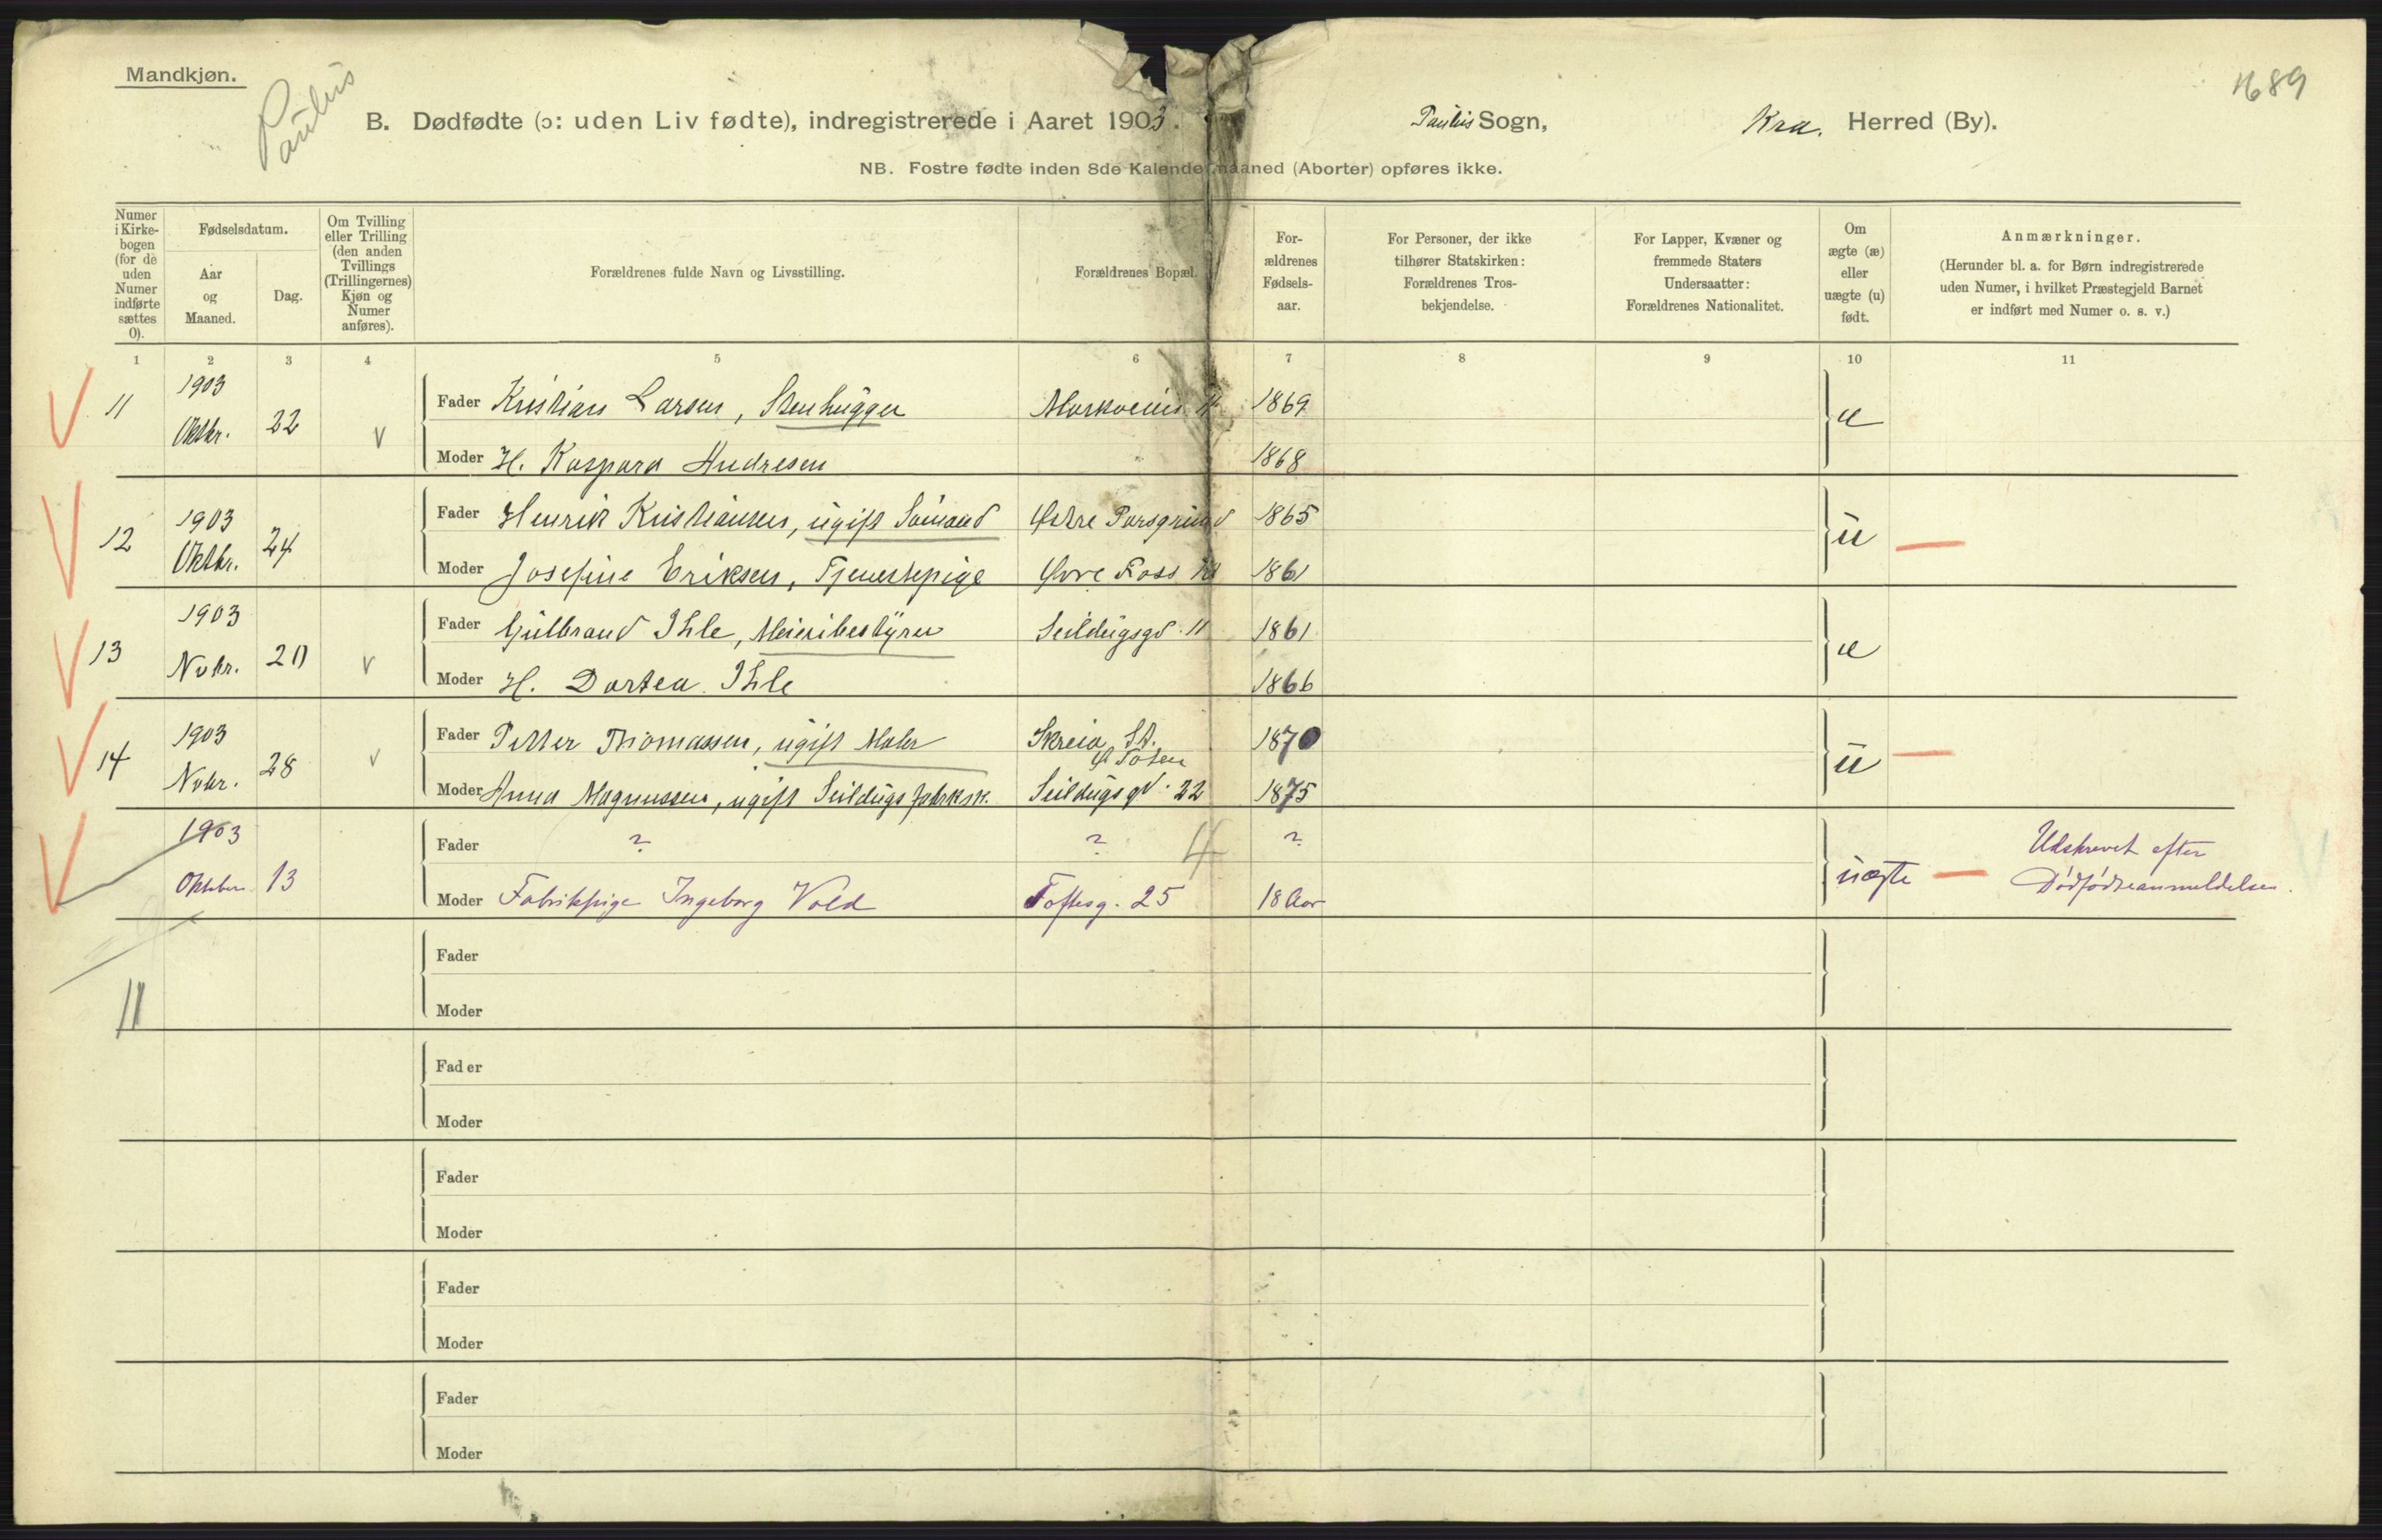 Mandkjøn.
Paulus
1689
B. Dødfødte (ɔ: uden Liv fødte), indregistrerede i Aaret 1903. Paulus Sogn, Kra. Herred (By).
NB. Fostre fødte inden 8de Kalendermaaned (Aborter) opføres ikke.
Numer i Kirke-bogen (for de uden Numer indførte sættes 0).
Fødselsdatum.
Aar og Maaned.
Dag.
Om Tvilling eller Trilling (den anden Tvillings (Trillingernes) Kjøn og Numer anføres).
Forældrenes fulde Navn og Livsstilling.
Forældrenes Bopæl.
For-ældrenes Fødsels-aar.
For Personer, der ikke tilhører Statskirken: Forældrenes Tros-bekjendelse.
For Lapper, Kvæner og fremmede Staters Undersaatter: Forældrenes Nationalitet.
Om ægte (æ) eller uægte (u) født.
Anmærkninger.
(Herunder bl. a. for Børn indregistrerede uden Numer, i hvilket Præstegjeld Barnet er indført med Numer o. s. v.)
1 2 3 4 5 6 7 8 9 10 11
11 1903 Oktbr. 22 Fader Kristian Larsen, Stenhugger 1869 æ
Moder H. Kaspara Andresen 1868
12 1903 Oktbr. 24 Fader Henrik Kristiansen, ugift Sømand Østre Porsgrund 1865 u
Moder Josefine Eriksen, Tjenestepige Øvre Foss 1861
13 1903 Nvbr. 20 Fader Gulbrand Ihle, Meieribestyrer Seildugsgd. 11 1861 æ
Moder H. Dortea Ihle 1866
14 1903 Nvbr. 28 Fader Petter Thomassen, ugift Maler Skreia St. Ø. Toten 1870 u
Moder Anna Magnussen, ugift Seildugsfabriksk. Seildugsgd. 22 1875
1903 Oktober 13 Fader ? ? 4 ? uægte Udskrevet efter
Moder Fabrikpige Ingeborg Vold Toftesg. 25 18 Aar Dødfødseanmeldelsen.
Fader
11
Moder
Fader
Moder
Fader
Moder
Fader
Moder
Fader
Moder